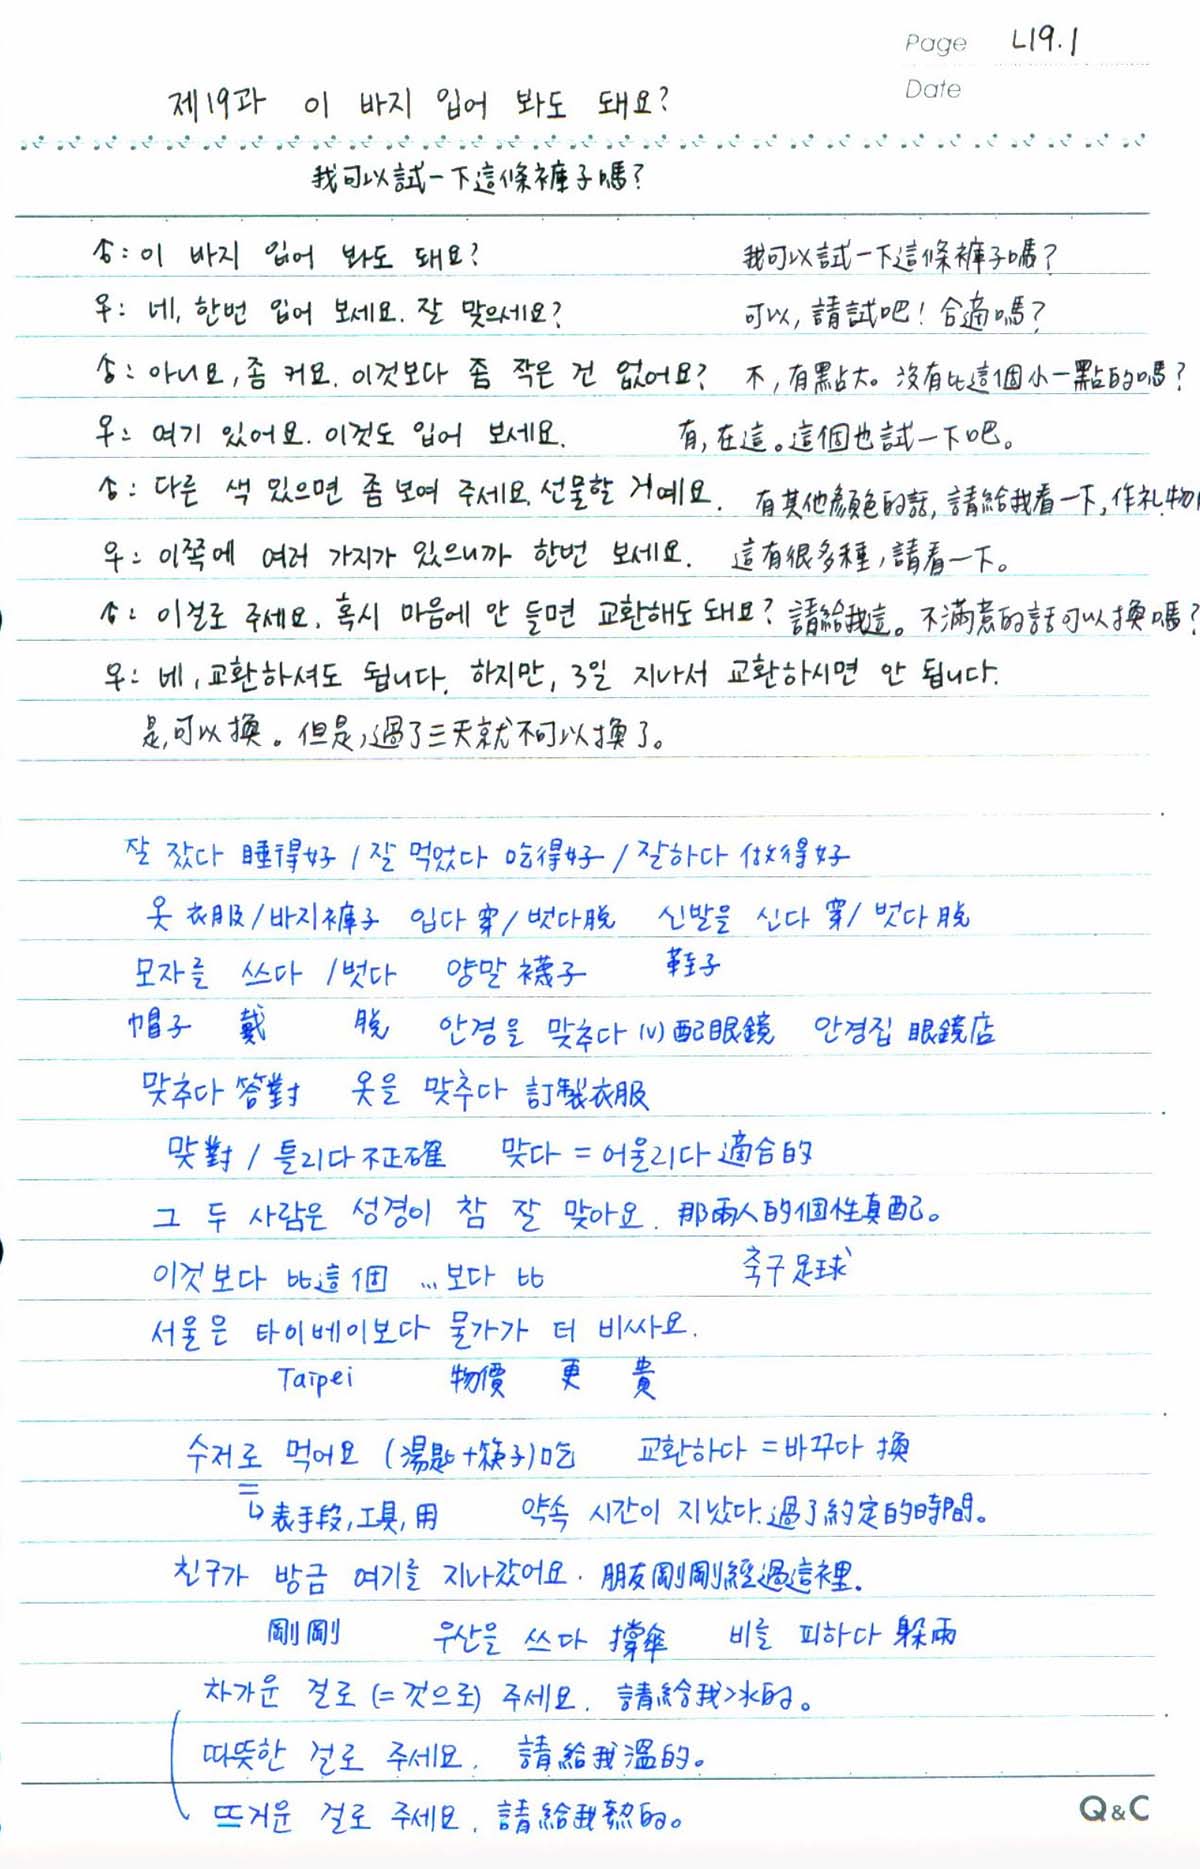 Page L19.1
Date
제19과 이 바지 입어 봐도 돼요?
我可以試一下這條褲子嗎?
송: 이 바지 입어 봐도 돼요? 我可以試一下這條褲子嗎?
우: 네, 한번 입어 보세요. 잘 맞으세요? 可以, 請試吧! 合適嗎?
송: 아니요, 좀 커요. 이것보다 좀 작은 건 없어요? 不, 有點大。沒有比這個小一點的嗎?
우: 여기 있어요. 이것도 입어 보세요. 有, 在這。這個也試一下吧。
송: 다른 색 있으면 좀 보여 주세요. 선물할 거예요. 有其他顏色的話, 請給我看一下, 作礼物
우: 이쪽에 여러 가지가 있으니까 한번 보세요. 這有很多種, 請看一下。
송: 이걸로 주세요. 혹시 마음에 안 들면 교환해도 돼요? 請給我這。不滿意的話可以換嗎?
우: 네, 교환하셔도 됩니다. 하지만, 3일 지나서 교환하시면 안 됩니다.
是, 可以換。但是, 過了三天就不可以換了。
잘 잤다 睡得好 / 잘 먹었다 吃得好 / 잘하다 做得好
옷 衣服 / 바지 褲子 입다 穿 / 벗다 脫 신발을 신다 穿 / 벗다 脫
모자를 쓰다 / 벗다 양말 襪子 鞋子
帽子 戴 脫 안경을 맞추다 (v) 配眼鏡 안경집 眼鏡店
맞추다 答對 옷을 맞추다 訂製衣服
맞 對 / 틀리다 不正確 맞다 = 어울리다 適合的
그 두 사람은 성경이 참 잘 맞아요. 那兩人的個性真配。
이것보다 比這個 …보다 比 축구 足球
서울은 타이베이보다 물가가 더 비싸요.
Taipei 物價 更 貴
수저로 먹어요 (湯匙+筷子) 吃 교환하다 = 바꾸다 換
↳ 表手段, 工具, 用 약속 시간이 지났다. 過了約定的時間。
친구가 방금 여기를 지나갔어요. 朋友剛剛經過這裡.
剛剛 우산을 쓰다 撐傘 비를 피하다 躲雨
차가운 걸로 (= 것으로) 주세요. 請給我冰的。
따뜻한 걸로 주세요. 請給我溫的。
뜨거운 걸로 주세요. 請給我熱的。
Q&C